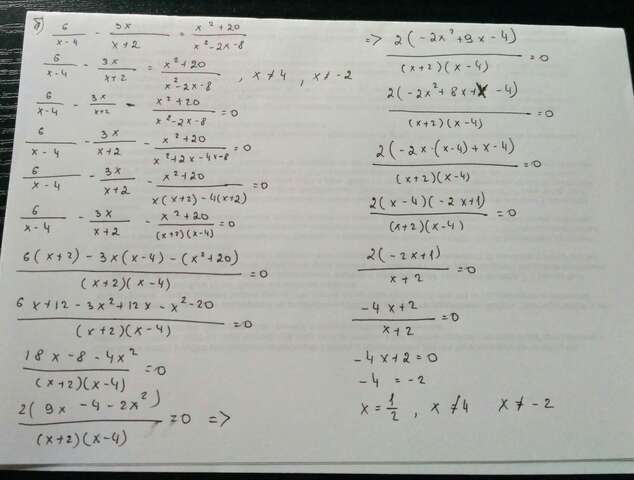 б) 6/(x-4) - 3x/(x+2) = (x²+20)/(x²-2x-8)
6/(x-4) - 3x/(x+2) = (x²+20)/(x²-2x-8) , x≠4 , x≠-2
6/(x-4) - 3x/(x+2) - (x²+20)/(x²-2x-8) =0
6/(x-4) - 3x/(x+2) - (x²+20)/(x²+2x-4x-8) =0
6/(x-4) - 3x/(x+2) - (x²+20)/(x(x+2)-4(x+2)) =0
6/(x-4) - 3x/(x+2) - (x²+20)/((x+2)(x-4)) =0
(6(x+2)-3x(x-4)-(x²+20))/((x+2)(x-4)) =0
(6x+12-3x²+12x-x²-20)/((x+2)(x-4)) =0
(18x-8-4x²)/((x+2)(x-4)) =0
2(9x-4-2x²)/((x+2)(x-4)) =0 =>
=> 2(-2x²+9x-4)/((x+2)(x-4)) =0
2(-2x²+8x+x-4)/((x+2)(x-4)) =0
2(-2x·(x-4)+x-4)/((x+2)(x-4)) =0
2(x-4)(-2x+1)/((x+2)(x-4)) =0
2(-2x+1)/(x+2) =0
(-4x+2)/(x+2) =0
-4x+2=0
-4 = -2
x=1/2 , x≠4 x≠-2